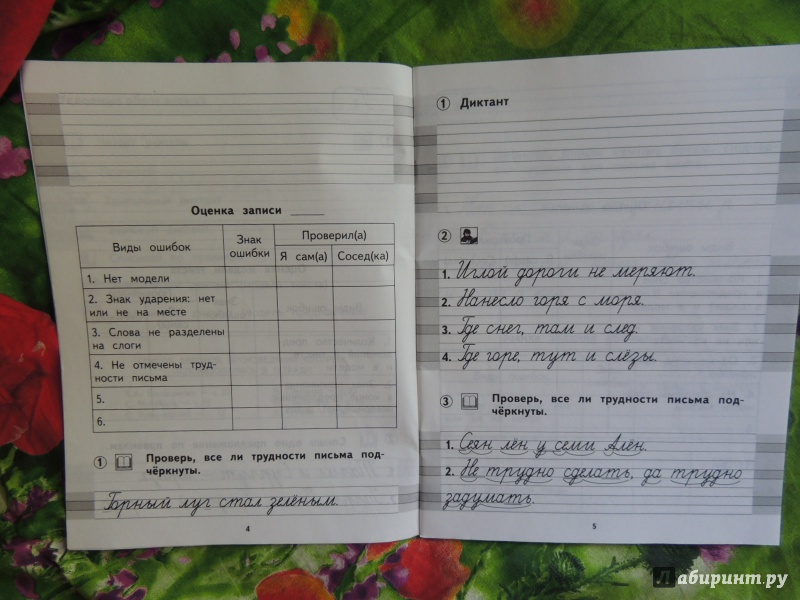 Оценка записи
Виды ошибок
Знак ошибки
Проверил(а)
Я сам(а)
Сосед(ка)
1. Нет модели
2. Знак ударения: нет
или не на месте
3. Слова не разделены
на слоги
4. Не отмечены труд-
ности письма
5.
6.
1 Проверь, все ли трудности письма под-
чёркнуты.
Горный луг стал зелёным.
4
1 Диктант
2
1. Иглой дороги не меряют.
2. Нанесло горя с моря.
3. Где снег, там и след.
4. Где горе, тут и слёзы.
3 Проверь, все ли трудности письма под-
чёркнуты.
1. Сеян лён у семи Алён.
2. Не трудно сделать, да трудно
задумать.
5
Лабиринт.ру